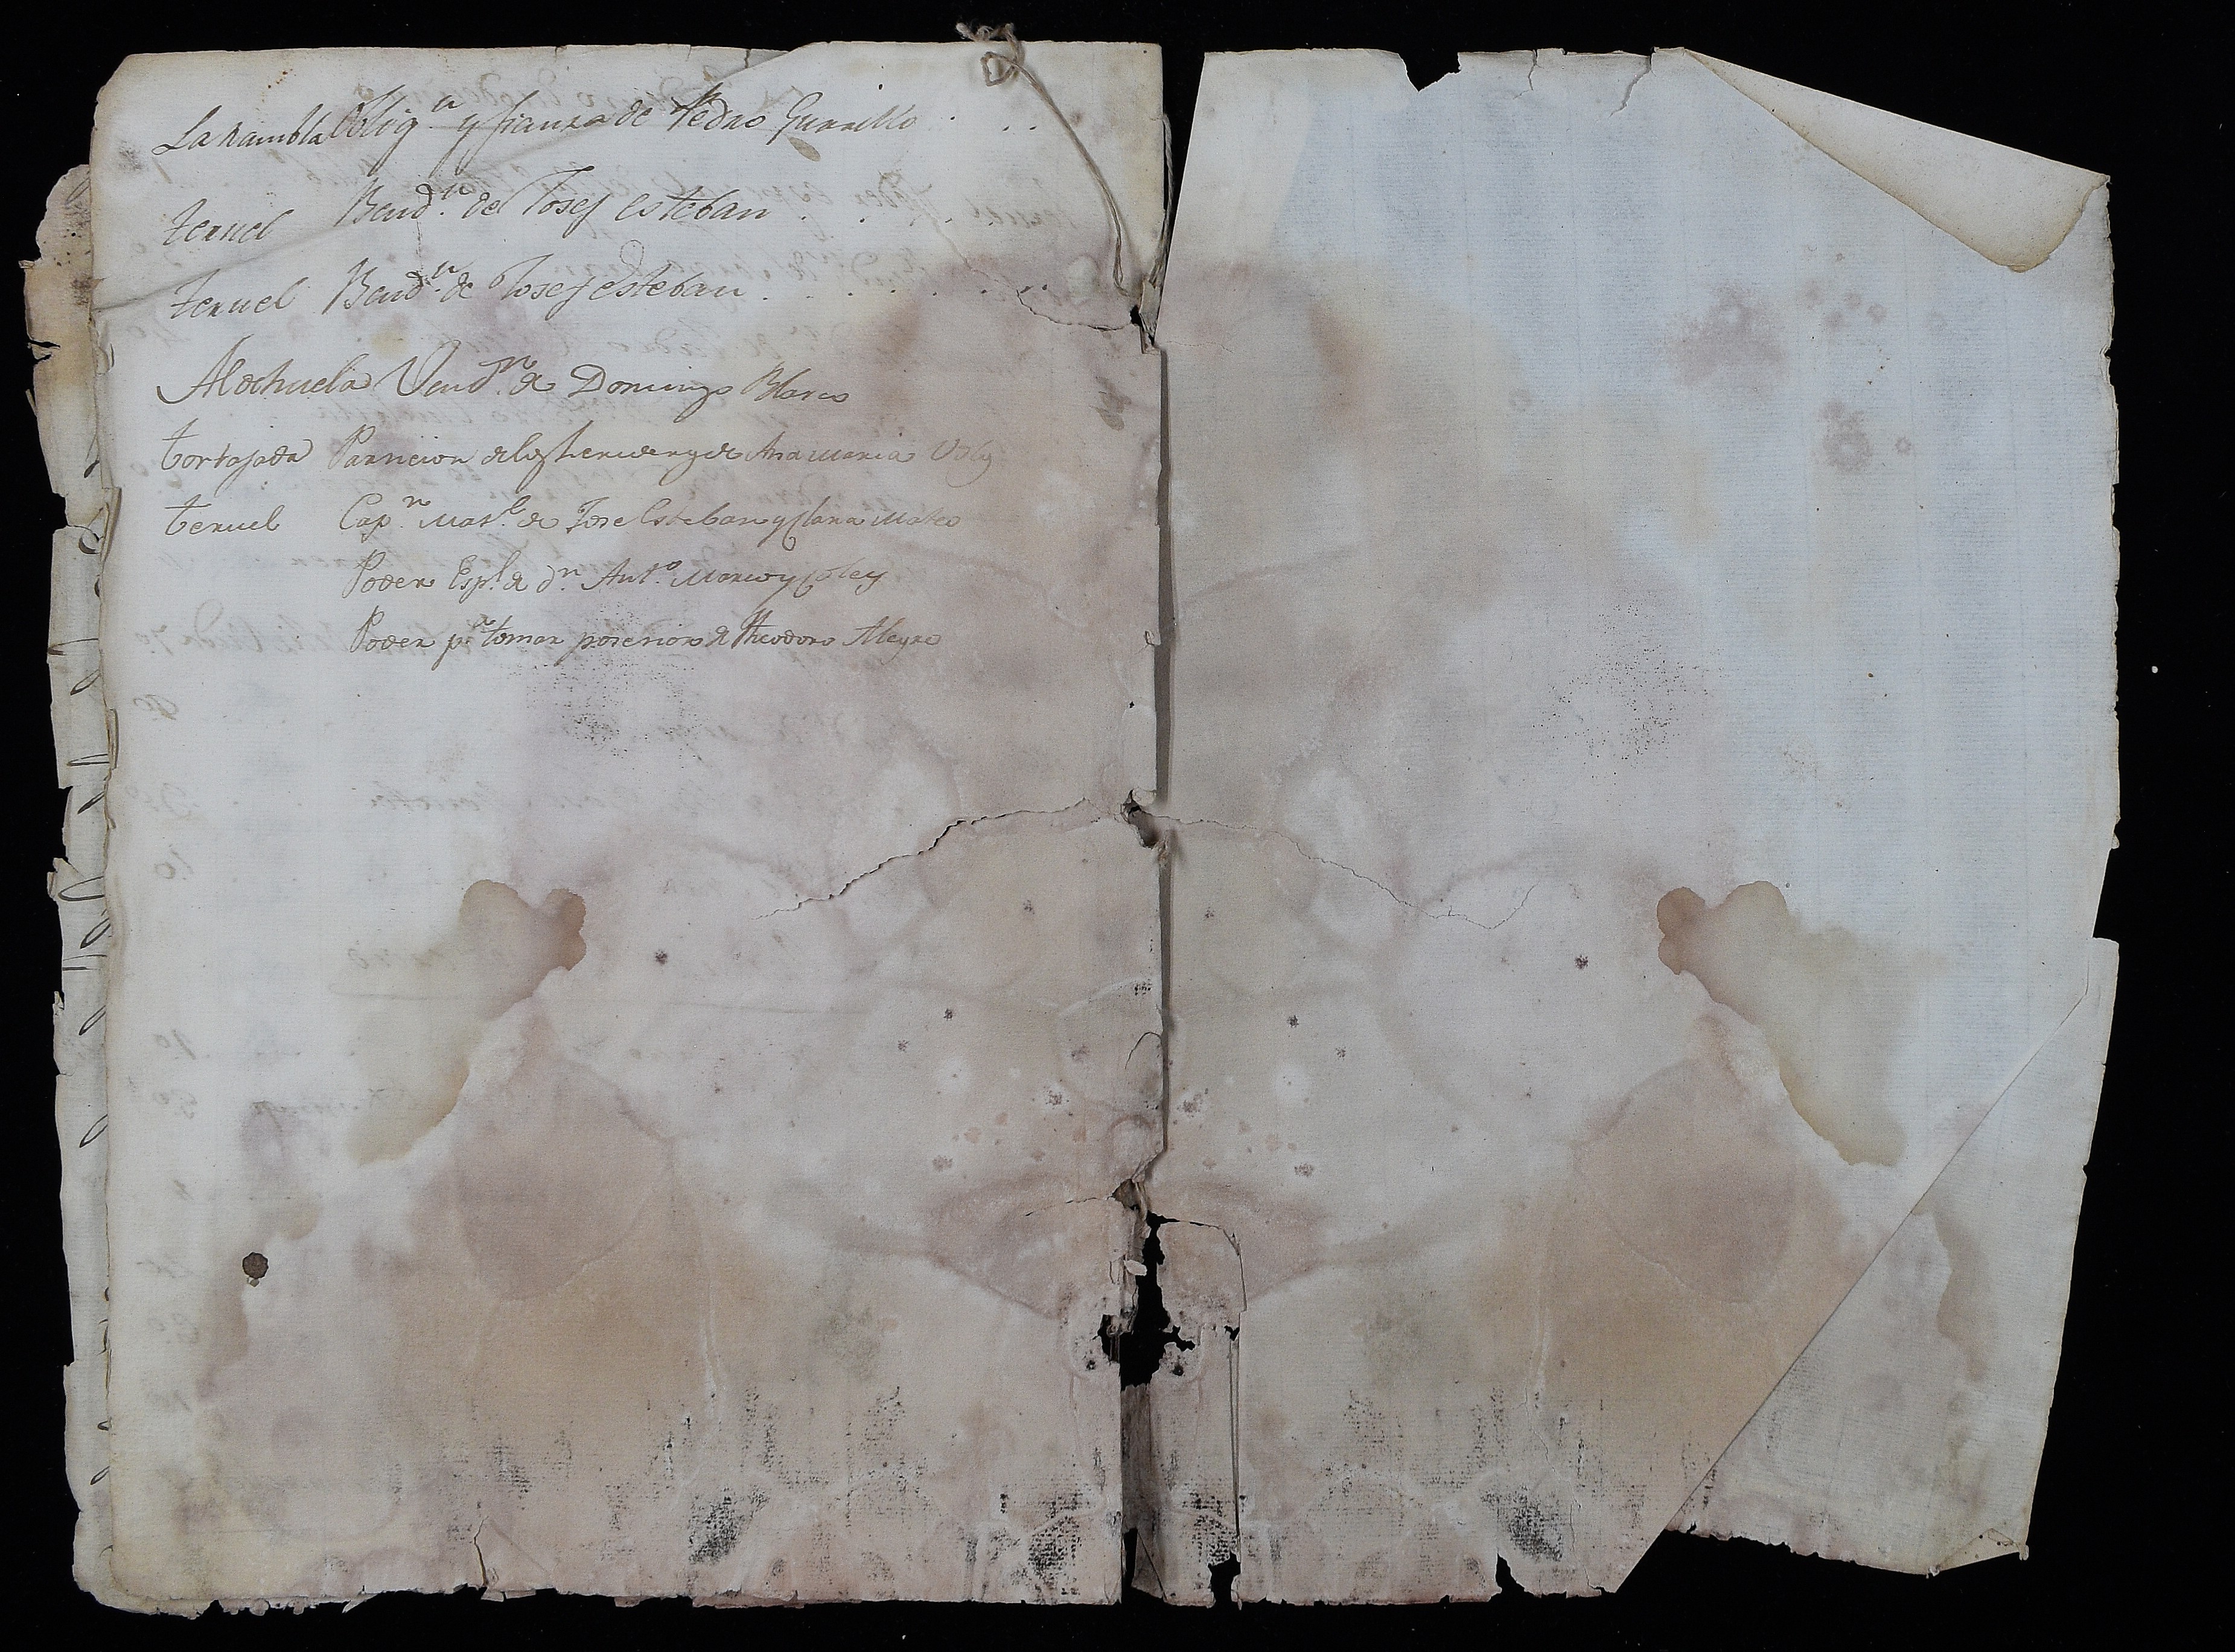 La rambla Oblig.n y fianza de Pedro Gurrillo . . .
teruel Bend.n de Josef esteban . . .
teruel Bend.n de Josef esteban . . . . . . .
Aldehuela Vend.n de Domingo Blasco
tortajada Particion de los herederos de Ana Maria
teruel Cap.n Mat.l de Jose Esteban y Clara Mateo
Poder Esp.l de d.n Ant.o
Poder p.a tomar posesion de Theodoro Alegre